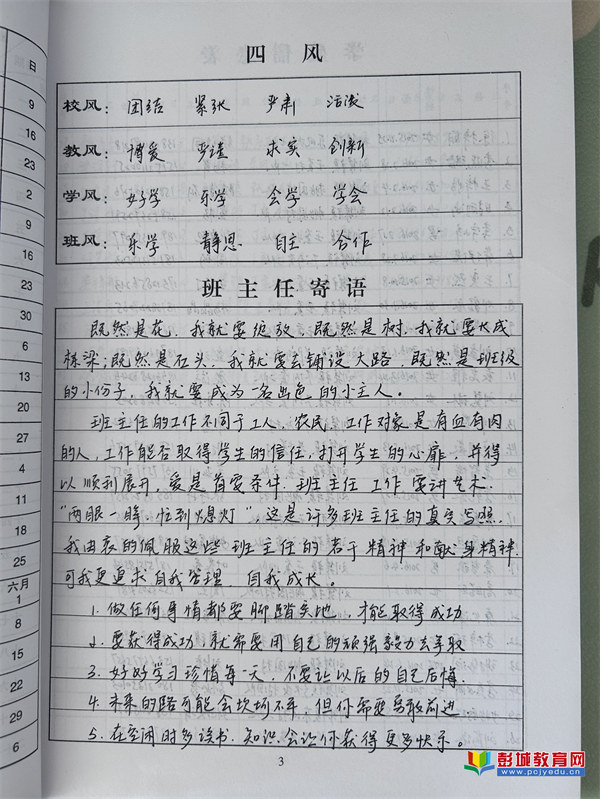 四 风
校风: 团结 紧张 严肃 活泼
教风: 博爱 严谨 求实 创新
学风: 好学 乐学 会学 学会
班风: 乐学 静思 自主 合作
班主任寄语
既然是花，我就要绽放，既然是树，我就要长成
栋梁；既然是石头，我就要去铺设大路，既然是班级
的小份子，我就要成为一名出色的小主人。
班主任的工作不同于工人，农民，工作对象是有血有肉
的人，工作能否取得学生的信任，打开学生的心扉，并得
以顺利展开，爱是首要条件．班主任工作要讲艺术．
“两眼一睁，忙到熄灯”，这是许多班主任的真实写照．
我由衷的佩服这些班主任的苦干精神和献身精神．
可我更追求自我管理，自我成长。
1. 做任何事情都要脚踏实地，才能取得成功
2. 要获得成功，就需要用自己的顽强毅力去争取
3. 好好学习珍惜每一天，不要让以后的自己后悔．
4. 未来的路可能会坎坷不平，但你需要勇敢前进
5. 在空闲时多读书，知识会让你获得更多快乐。
3
日
9
16
23
2
9
16
23
30
6
13
20
27
4
11
18
25
六月
1
8
15
22
29
6
彭城教育网
www.pcjyedu.cn